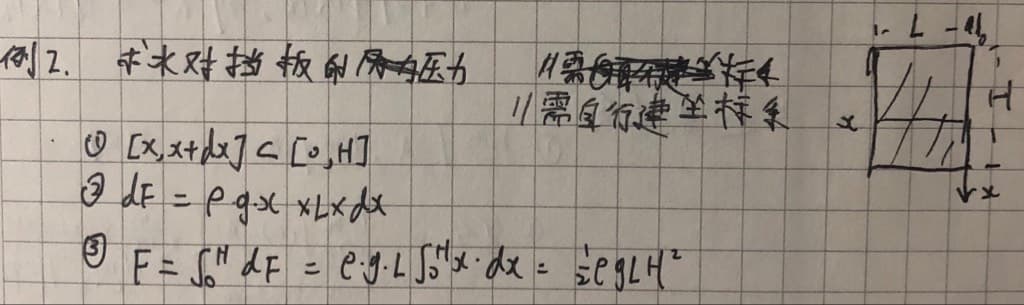 例2. 求水对挡板的压力
//需自行建坐标系
① [x,x+dx]⊂[0,H]
② dF = ρ·g·x×L×dx
③ F=∫₀ᴴ dF = ρ·g·L∫₀ᴴx·dx = ½ρgLH²
L
0
H
x
x